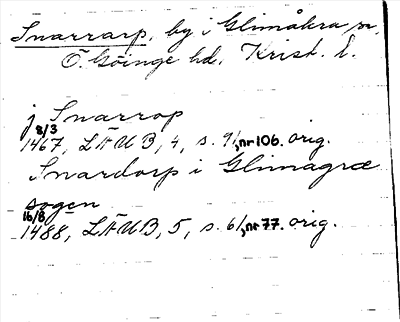 Snarrarp, by i Glimåkra sn,
Ö. Göinge hd. Krist. l.
j Snarrop
8/3
1467, LÄUB, 4, s. 91, nr 106. orig.
Snardorp i Glimagræ
sogen
16/8
1488, LÄUB, 5, s. 61, nr 77. orig.